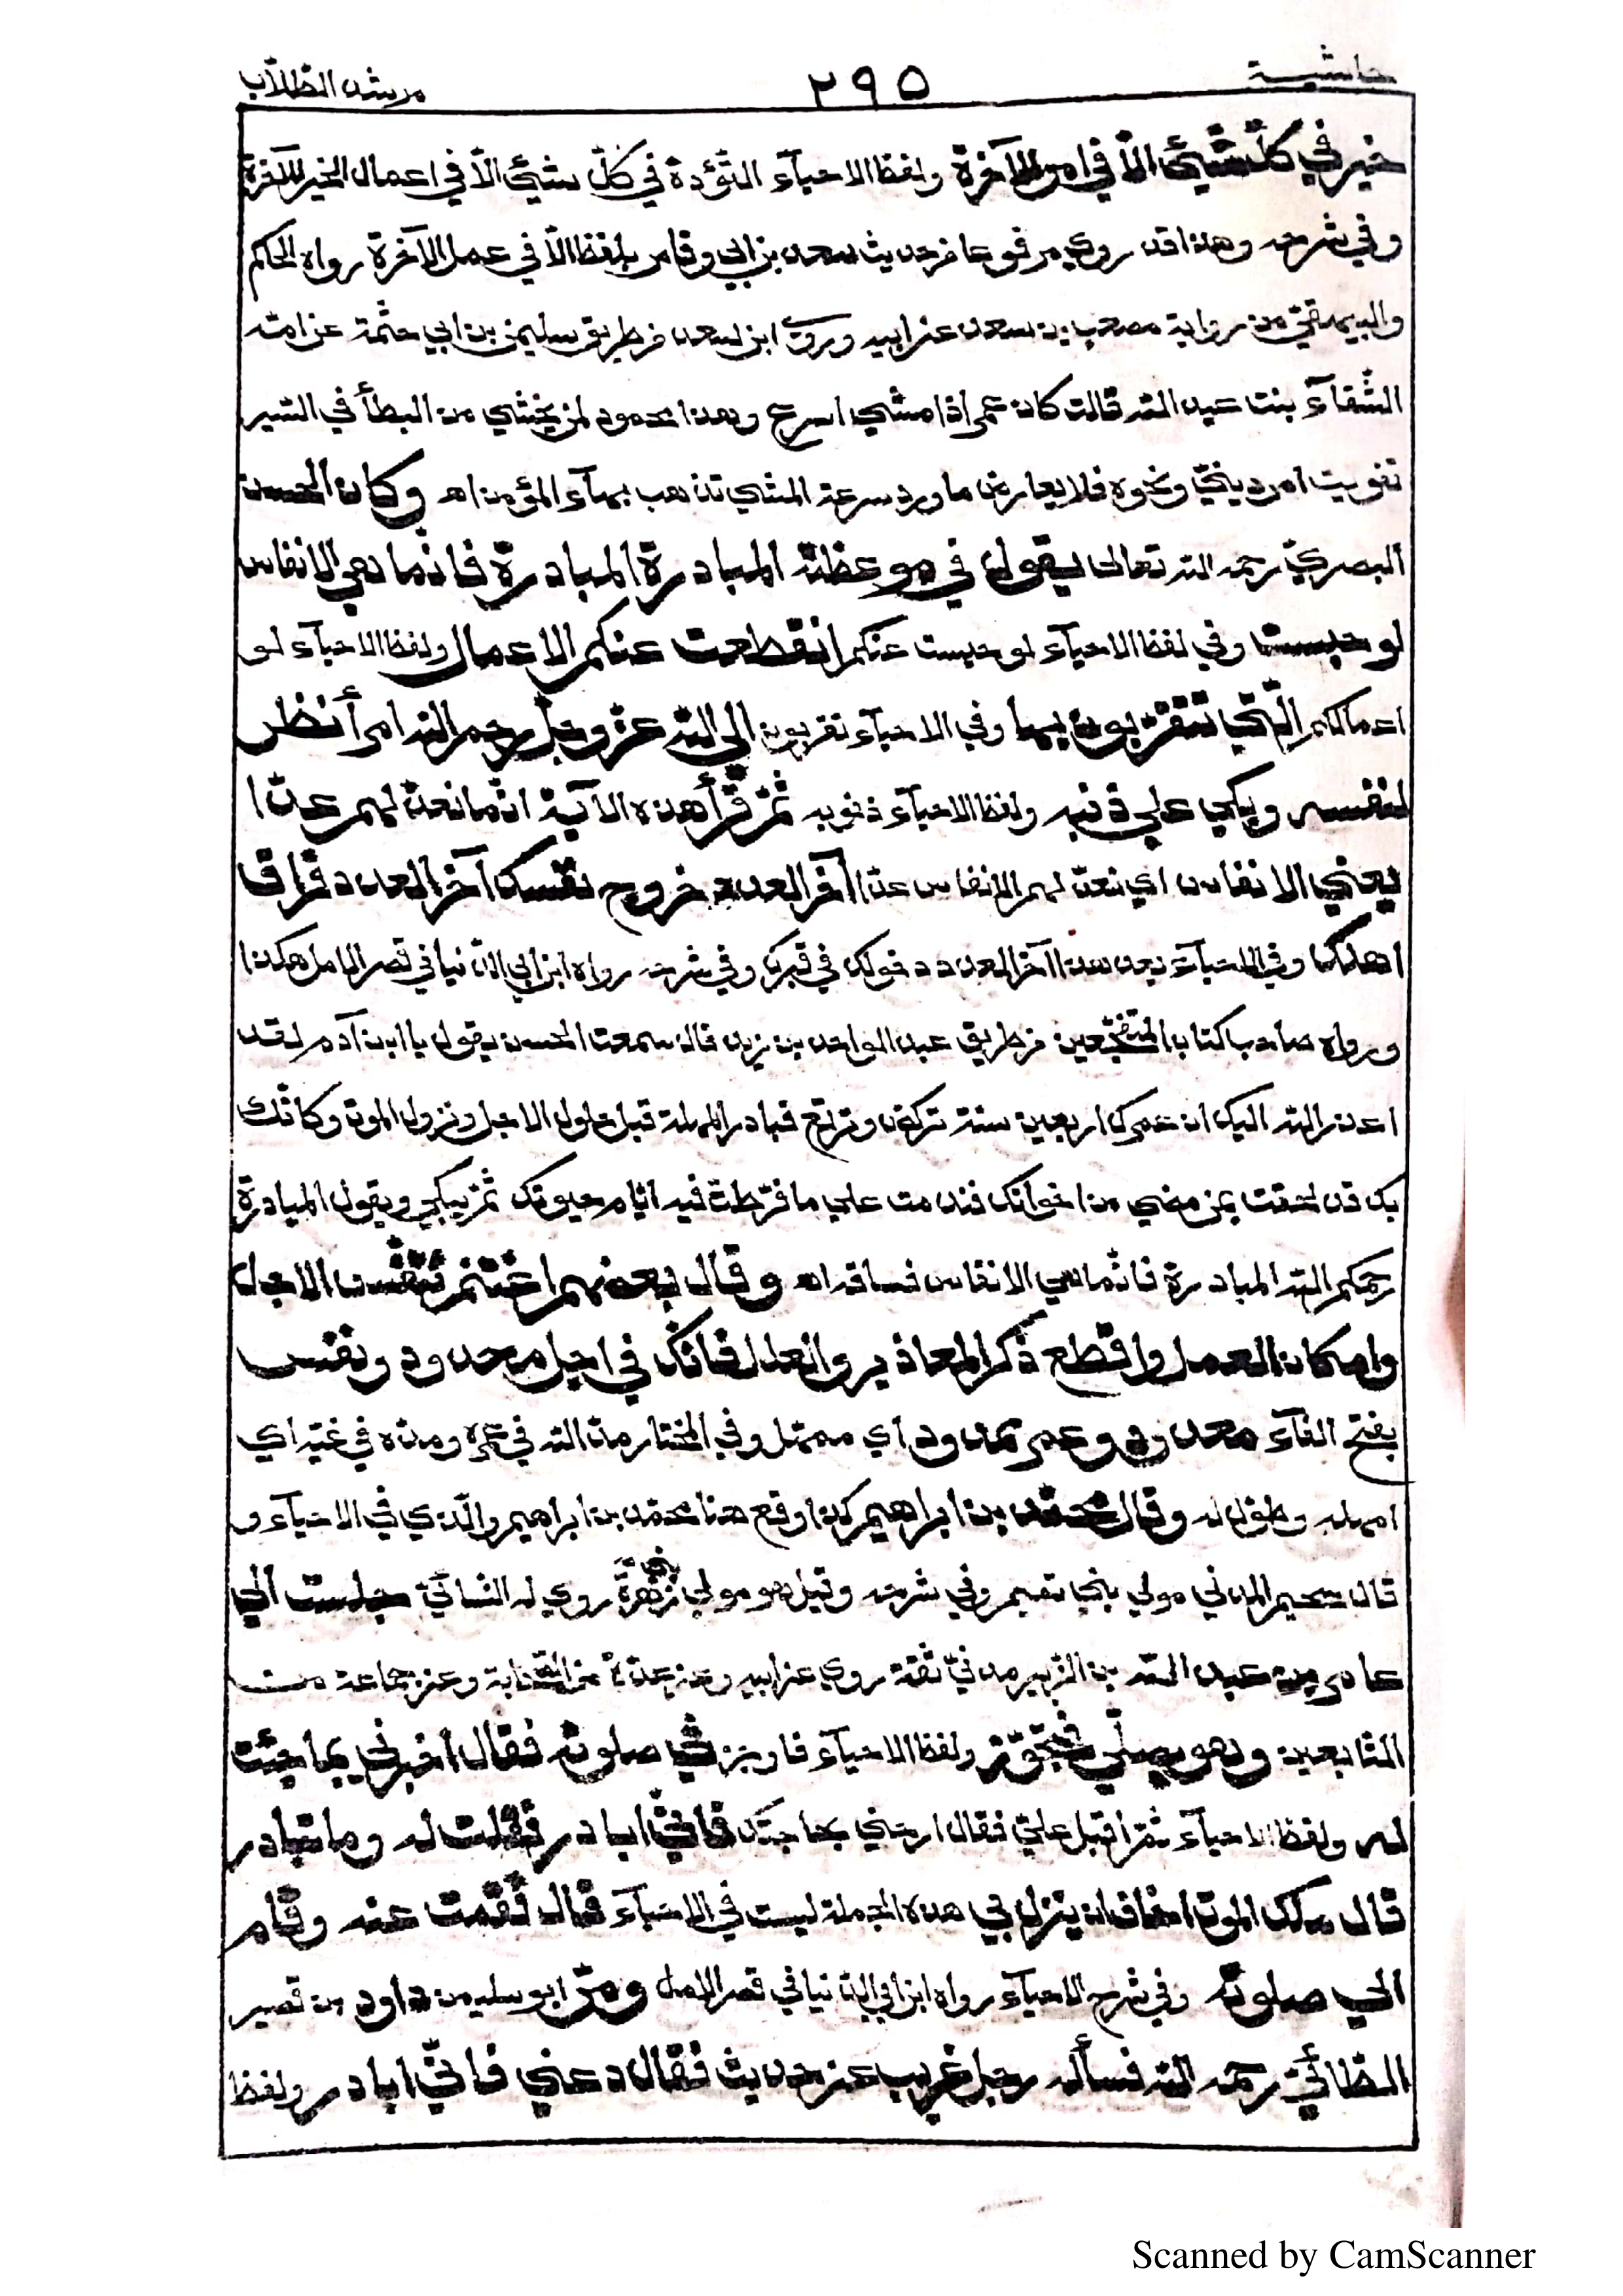 حاشية ٢٩٥ مرشد الطلاب
خير في كلّ شيئ الّا في امر الآخرة ولفظ الاحيآء التّؤدة في كلّ شيئ الّا في اعمال الخير للآخرة
وفي شرحه وهذا قد روي مرفوعا من حديث سعد بن ابي وقاص بلفظ الّا في عمل الآخرة رواه الحاكم
والبيهقيّ من رواية مصعب بن سعد عن ابيه وروى ابن سعد من طريق سليمن بن ابي حثمة عن امّه
الشّفآء بنت عبد اللّه قالت كان عمر اذا مشي اسرع وهذا محمود لمن يخشي من البطأ في السّير
تفويت امر دينيّ ونحوه فلا يعارض ما ورد سرعة المشي تذهب بهآء المؤمن اه وكان الحسن
البصريّ رحمه اللّه تعالى يقول في موعظته المبادرة المبادرة فانّما هي الانفاس
لو حبست وفي لفظ الاحيآء لو حبست عنكم انقطعت عنكم الاعمال ولفظ الاحيآء لو
اعمالكم الّتي تتقرّبون بها وفي الاحيآء تقربون الى اللّه عزّ وجلّ رحم اللّه امرأ نظر
لنفسه وبكي علي ذنبه ولفظ الاحيآء ذنوبه ثمّ قرأ هذه الآية انّما نعدّ لهم عدّا
يعني الانفاس اي نعدّ لهم الانفاس عدّا آخر العدد خروج نفسك آخر العدد فراق
اهلك وفي الاحيآء بعد هذا آخر العدد دخولك في قبرك وفي شرحه رواه ابن ابي الدّنيا في قصر الامل هكذا
ورواه صاحب كتاب المتفجّعين من طريق عبد الواحد بن زيد قال سمعت الحسن يقول يا ابن آدم لقد
اعذر اللّه اليك ان عمرك اربعين سنة تركض وترتع فبادر المهلة قبل حلول الاجل ونزول الموت وكانّك
بك قد لحقت بمن مضي من اخوانك فندمت علي ما فرّطت فيه ايّام حيوتك ثمّ يبكي ويقول المبادرة
رحمكم اللّه المبادرة فانّما هي الانفاس فساقه اه وقال بعضهم اغتنم تنفّس الاجل
وامكان العمل واقطع ذكر المعاذير والعلل فانّك في اجل محدود ونفس
بفتح الفآء معدود وعمر ممدود اي ممهّل وفي المختار مدّ اللّه في عمره ومدّه في غيّه اي
امهله وطوّل له وقال محمّد بن ابراهيم كذا وقع هنا محمّد بن ابراهيم والّذي في الاحيآء و
قال سحيم المدني مولي بني تميم وفي شرحه وقيل هو مولي بني زهرة روي له النّسائيّ جلست الي
عامر بن عبد اللّه بن الزّبير مدنيّ ثقة روي عن ابيه وعن عدّة من الصّحابة وعن جماعة من
التّابعين وهو يصلّي فتجوّز ولفظ الاحيآء فاوجز في صلوته فقال اخبرني بما جئت
له ولفظ الاحيآء ثمّ اقبل عليّ فقال ارحني بحاجتك فانّي ابادر فقلت له وما تبادر
قال ملك الموت اخاف ان ينزل بي هذه الجملة ليست في الاحيآء قال فقمت عنه وقام
الي صلوته وفي شرح الاحيآء رواه ابن ابي الدّنيا في قصر الامل ومرّ ابو سليمن داود بن نصير
الطّائيّ رحمه اللّه فسأله رجل غريب عن حديث فقال دعني فانّي ابادر ولفظ
Scanned by CamScanner